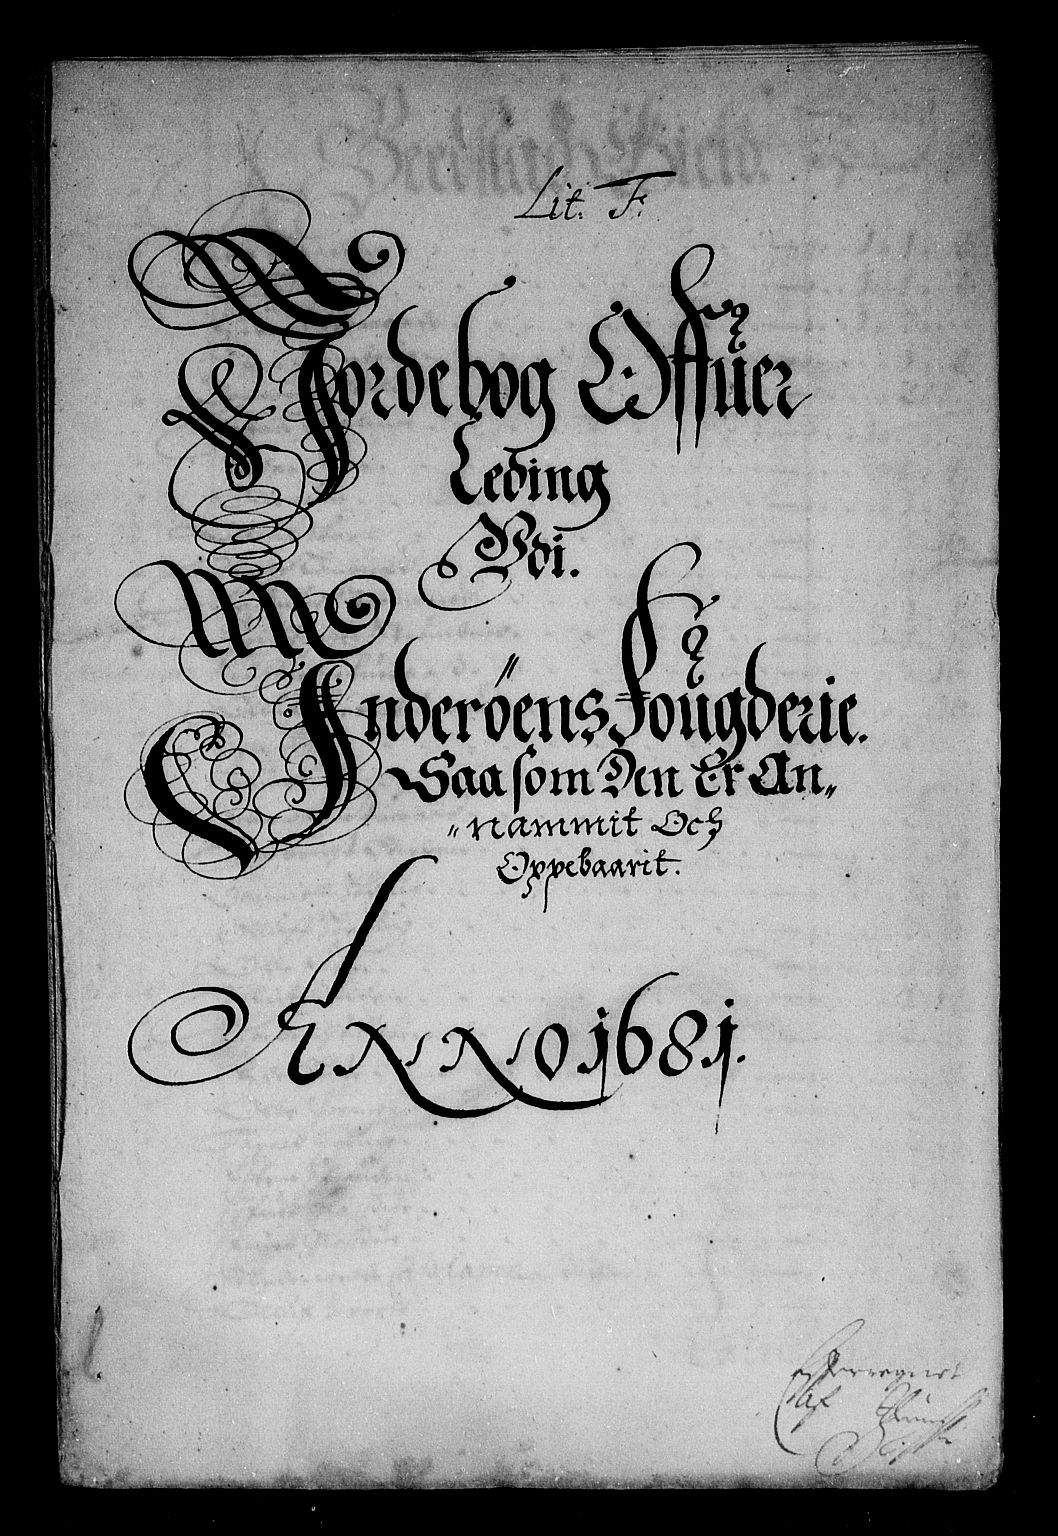 Lit. F.
Jordebog Offuer
Leding
Vdi.
Inderöens Fougderie.
Saa som Den Er An„
„nammit Och
Oppebaarit.
Anno 1681.
efterregnet
af